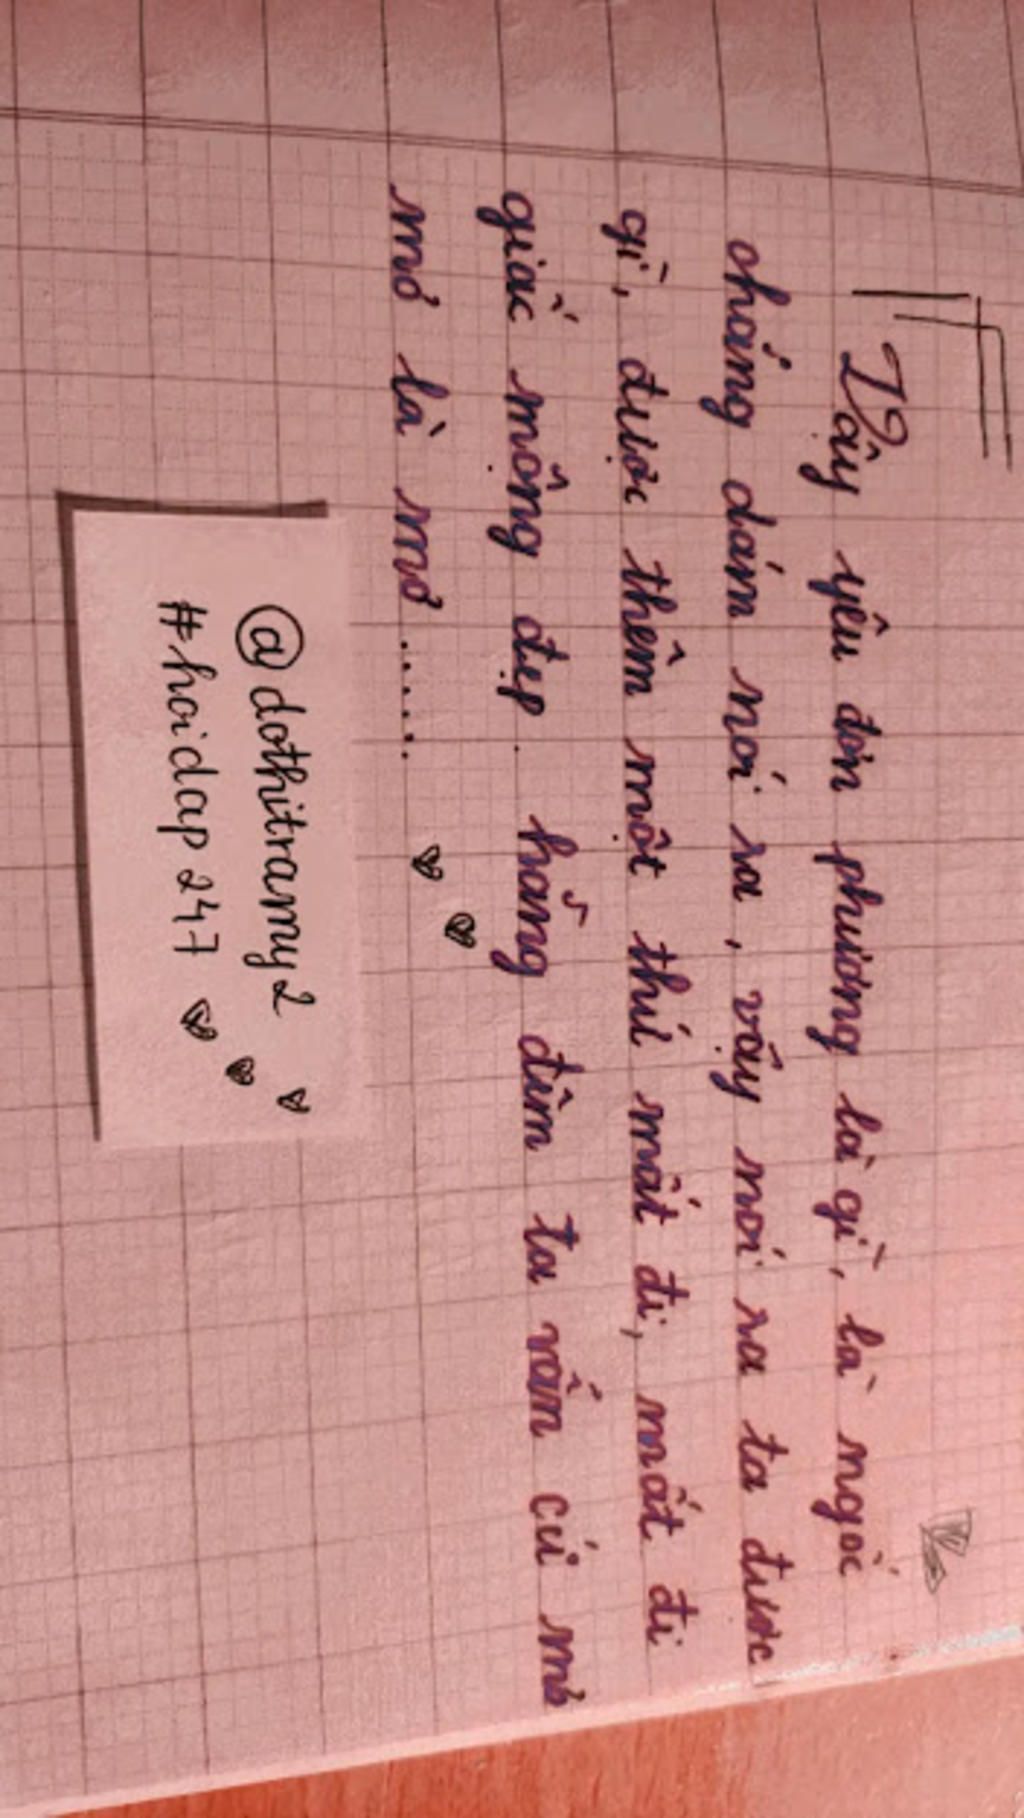 Vậy yêu đơn phương là gì, là ngốc
chẳng dám nói ra, vậy nói ra ta được
gì, được thêm một thứ mất đi, mất đi
giấc mộng đẹp. hằng đêm ta vấn cứ mơ
mơ là mơ......
@dothitramy2
#hoidap247